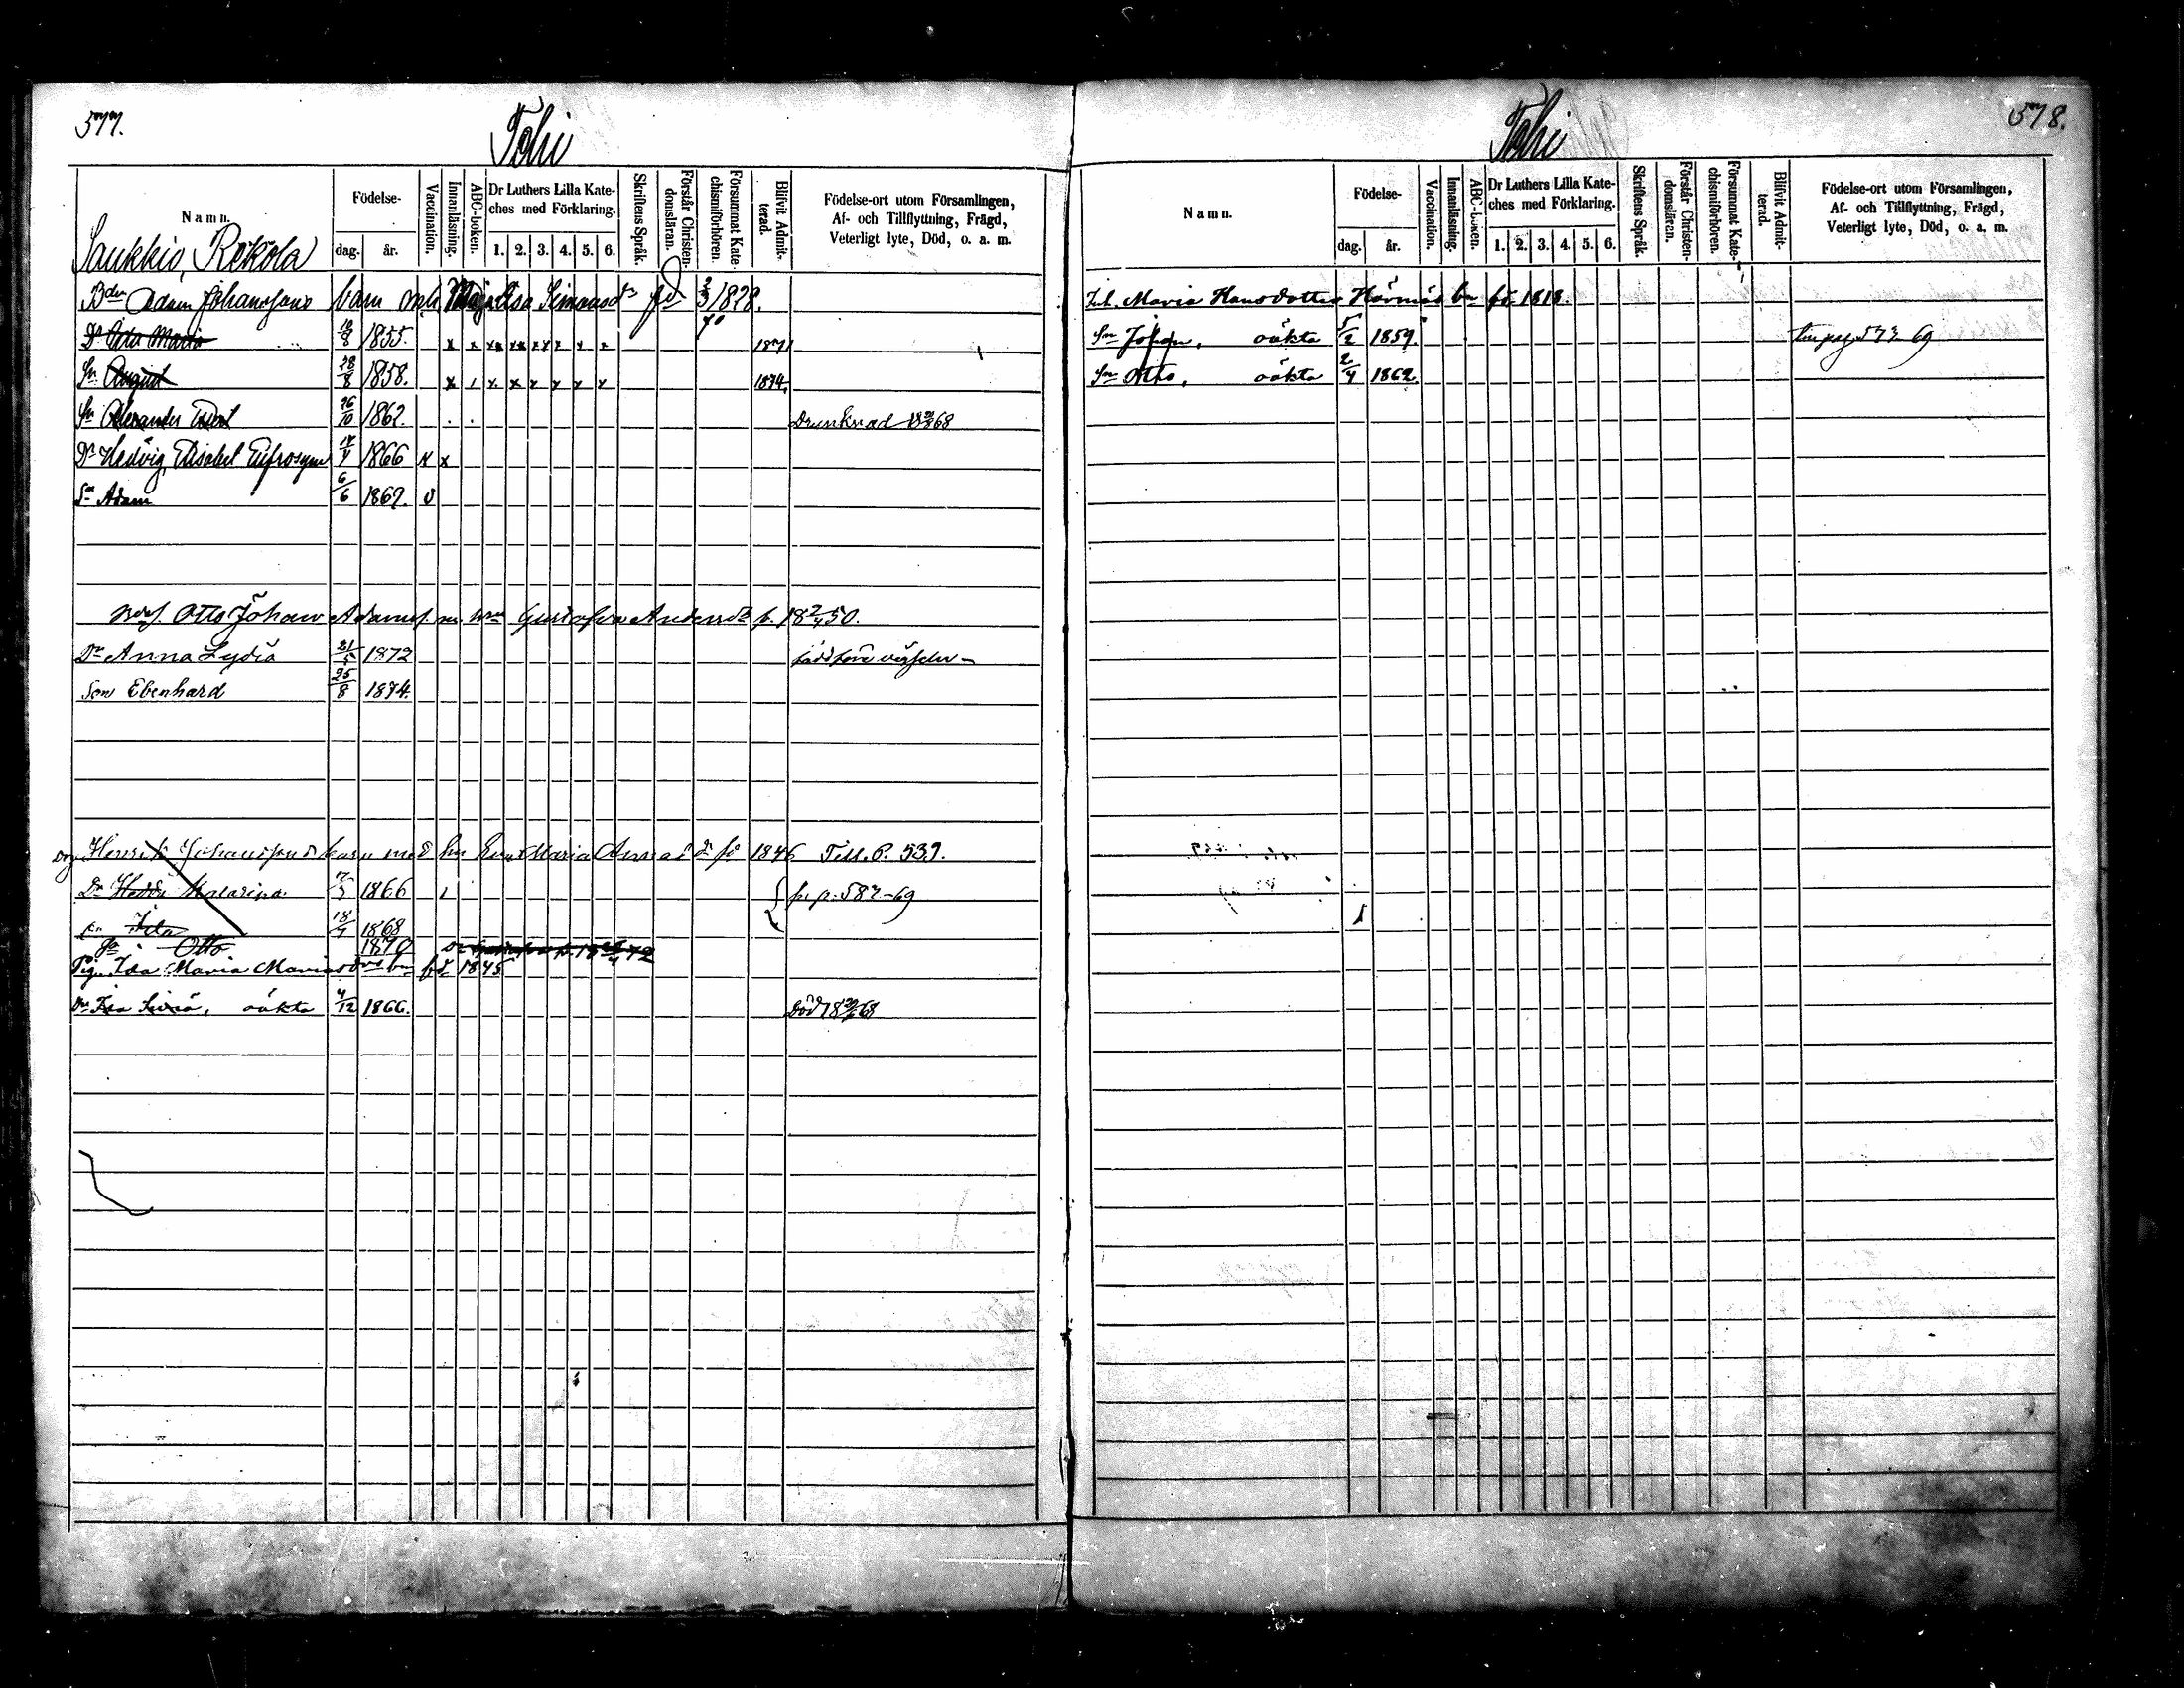 577.
Tohi
Namn.
Födelse-
dag.
år.
Vaccination.
Innanläsning.
ABC-boken.
Dr Luthers Lilla Kate-
ches med Förklaring.
1. 2. 3. 4. 5. 6.
Skriftens Språk.
Förstår Christen-
domsläran.
Försummat Kate-
chismiförhören.
Blifvit Admit-
terad.
Födelse-ort utom Församlingen,
Af- och Tillflyttning, Frägd,
Veterligt lyte, Död, o. a. m.
Saukkio, Rekola
Bdn Adam Johanssons barn m h Maja Lisa Simonsdr fd 2/3 1828.
Dr Ida Maria 10/8 1855. x x x xx xx x x x 1871
Sn August 28/8 1858. x 1 x x x x x x 1874.
Sn Alexander 26/10 1862. Drunknad 68
Dr Hedvig Elisabet Eufrosyne 1866 x x
Sn Adam 6/6 1869. v
Otto Johan Adamss. m. hru Gustafva Andersdr f. 18 2/4 50.
Dr Anna Lydia 21/5 1872 född före vigseln
Son Ebenhard 25/8 1874.
Drg Henrik Johanssons barn med hu Eva Maria dr fö 1846 Till. P. 539.
Dr Hedda Katarina 1866 1 fr. p. 582-69
Ida 18/7 1868
Otto 1870
Pig. Ida Maria bn fd 1845
Dr Ida oäkta 4/12 1866. Död 18 68
578.
Tohi
Namn.
Födelse-
dag.
år.
Vaccination.
Innanläsning.
ABC-boken.
Dr Luthers Lilla Kate-
ches med Förklaring.
1. 2. 3. 4. 5. 6.
Skriftens Språk.
Förstår Christen-
domsläran.
Försummat Kate-
chismiförhören.
Blifvit Admit-
terad.
Födelse-ort utom Församlingen,
Af- och Tillflyttning, Frägd,
Veterligt lyte, Död, o. a. m.
Inh. Maria Hansdotter bn fö 1818.
Sn Johan, oäkta 5/2 1859. 573-69
Sn Otto, oäkta 2/4 1862.